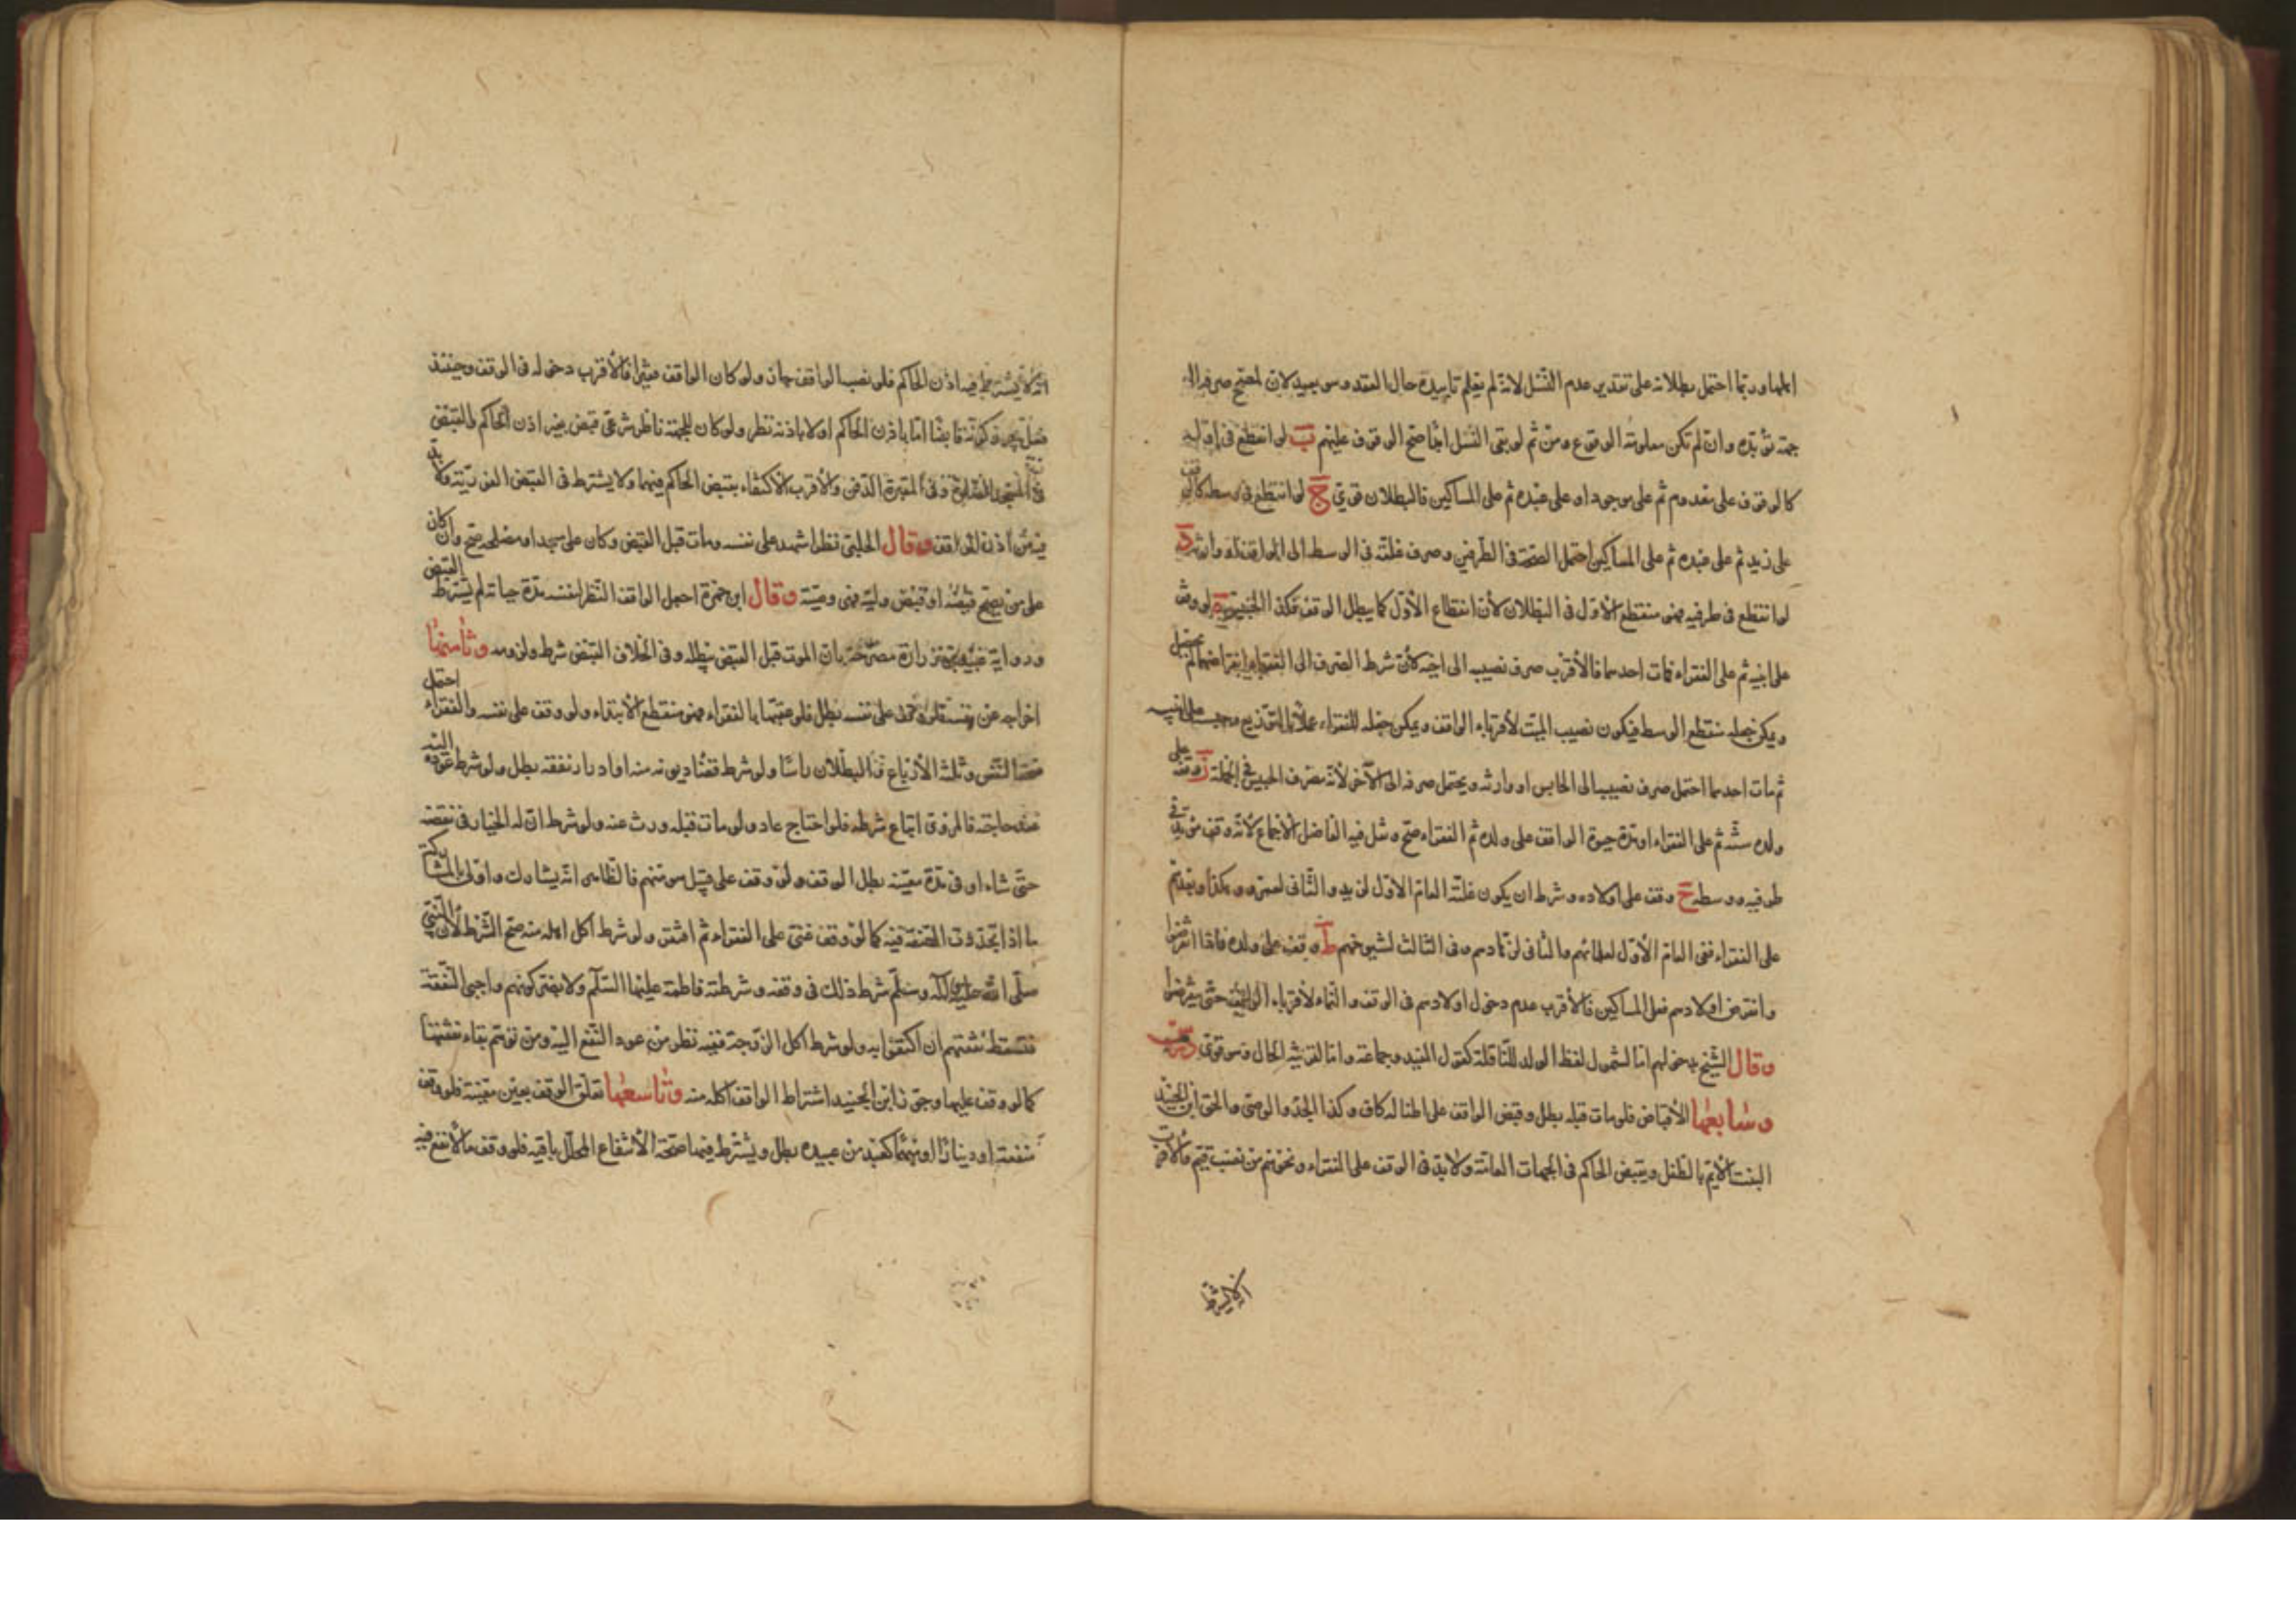 اهلها وربما احتمل بطلانه على تقدير عدم النسل لانه لم يعلم تابيده حال العقد وهو بعيد لان المعتبر صرفه الى
جهة مؤبدة وان لم تكن معلومة الوقوع ومن ثم لو بقى النسل ابدا صح الوقوف عليهم ب لو انقطع فى اوله
كالوقوف على معدوم ثم على موجود او على عبده ثم على المساكين فالبطلان قوى ج لو انقطع فى وسطه كالوقف
على زيد ثم على عبده ثم على المساكين احتمل الصحة فى الطرفين وصرف غلته فى الوسط الى الواقف او وارثه د
لو انقطع فى طرفيه فهو منقطع الاول فى البطلان لان انقطاع الاول كما يبطل الوقف فكذا الحبس ه لو وقف
على ابنيه ثم على الفقراء فمات احدهما فالاقرب صرف نصيبه الى اخيه لان شرط الصرف الى الفقراء انقراضهما ولم يحصل
ويمكن جعله منقطع الوسط فيكون نصيب الميت لاقرباء الواقف ويمكن جعله للفقراء عملا بالتوزيع
ثم مات احدهما احتمل صرف نصيبه الى الحابس او وارثه ويحتمل صرفه الى الآخر لانه مصرف الحبس فى الجملة ز وقف على
ولده سنة ثم على الفقراء او مدة حيوة الواقف على ولده ثم الفقراء صح ونقل فيه الفاضل الاجماع لانه وقف مؤبد فى
طرفيه ووسطه ح وقف على اولاده وشرط ان يكون غلته العام الاول لزيد والثانى لعمرو وهكذا او يقدم
على الفقراء ففى العام الاول لعلمائهم والثانى لزهادهم وفى الثالث لشيوخهم ط وقف على ولده فاذا انقرضوا
وانقرض اولادهم فعلى المساكين فالاقرب عدم دخول اولادهم فى الوقف والنماء لاقرباء الواقف حتى ينقرضوا
وقال الشيخ بدخولهم اما لشمول لفظ الولد للنافلة كقول المفيد وجماعة واما لقرينة الحال وهو قوى
وسابعها الاقباض فلو مات قبله بطل وقبض الواقف على اطفاله كاف وكذا الجد والوصى والحق ابن الجنيد
البنت الايم بالطفل ويقبض الحاكم فى الجهات العامة ولا بد فى الوقف على الفقراء ونحوهم من نصب قيم والاقرب
انه لا يشترط
انه لا يشترط فيه اذن الحاكم فلو نصب الواقف جاز ولو كان الواقف فقيرا فالاقرب دخوله فى الوقف وحينئذ
هل يجوز كونه قابضا اما باذن الحاكم او لا باذنه نظر ولو كان للجهة ناظر شرعى قبض بغير اذن الحاكم والقبض
فى المسجد الصلوة وفى المقبرة الدفن والاقرب الاكتفاء بقبض الحاكم فيهما ولا يشترط فى القبض الفورية ولا بد
فيه من اذن الواقف وقال الحلبى نظرا اشهد على نفسه ومات قبل القبض وكان على مسجد او مصلحة صح وان كان
على من يصح قبضه او قبض وليه فهى وصية وقال ابن حمزة اذا جعل الواقف النظر لنفسه مدة حياته لم يشترط القبض
ورواية عبيد بن زرارة مصرحة بان الموت قبل القبض يبطله وفى الخلاف القبض شرط ولزومه وثامنها
اخراجه عن نفسه فلو وقف على نفسه بطل فلو عقبها بالفقراء فهو منقطع الابتداء ولو وقف على نفسه والفقراء احتمل
صحة النصف وثلثة الارباع والبطلان راسا ولو شرط قضاء ديونه منه او ادرار نفقته بطل ولو شرط عوده اليه
عند حاجته فالمروى اتباع شرطه فلو احتاج عاد ولو مات قبله ورث عنه ولو شرط ان له الخيار فى نقضه
متى شاء او فى مدة معينة بطل الوقف ولو وقف على قبيل هو منهم فالظاهر انه يشارك واولى بالمشاركة
ما اذا تجددت الصفة فيه كما لو وقف غنى على الفقراء ثم افتقر ولو شرط اكل اهله منه صح الشرط لان النبى
صلى الله عليه وآله وسلم شرط ذلك فى وقفه وشرطته فاطمة عليها السلم ولا يضر كونهم واجبى النفقة
فتسقط نفقتهم ان اكتفوا به ولو شرط اكل الزوجة ففيه نظر من عود النفع اليه ومن توهم بقاء نفقتها
كما لو وقف عليها وجوز ابن الجنيد اشتراط الواقف اكله منه وتاسعها تعلق الوقف بعين معينة فلو وقف
منفعة او دينا او مبهما كعبد من عبيده بطل ويشترط فيها صحة الانتفاع المحلل باقية فلو وقف ما لا نفع فيه